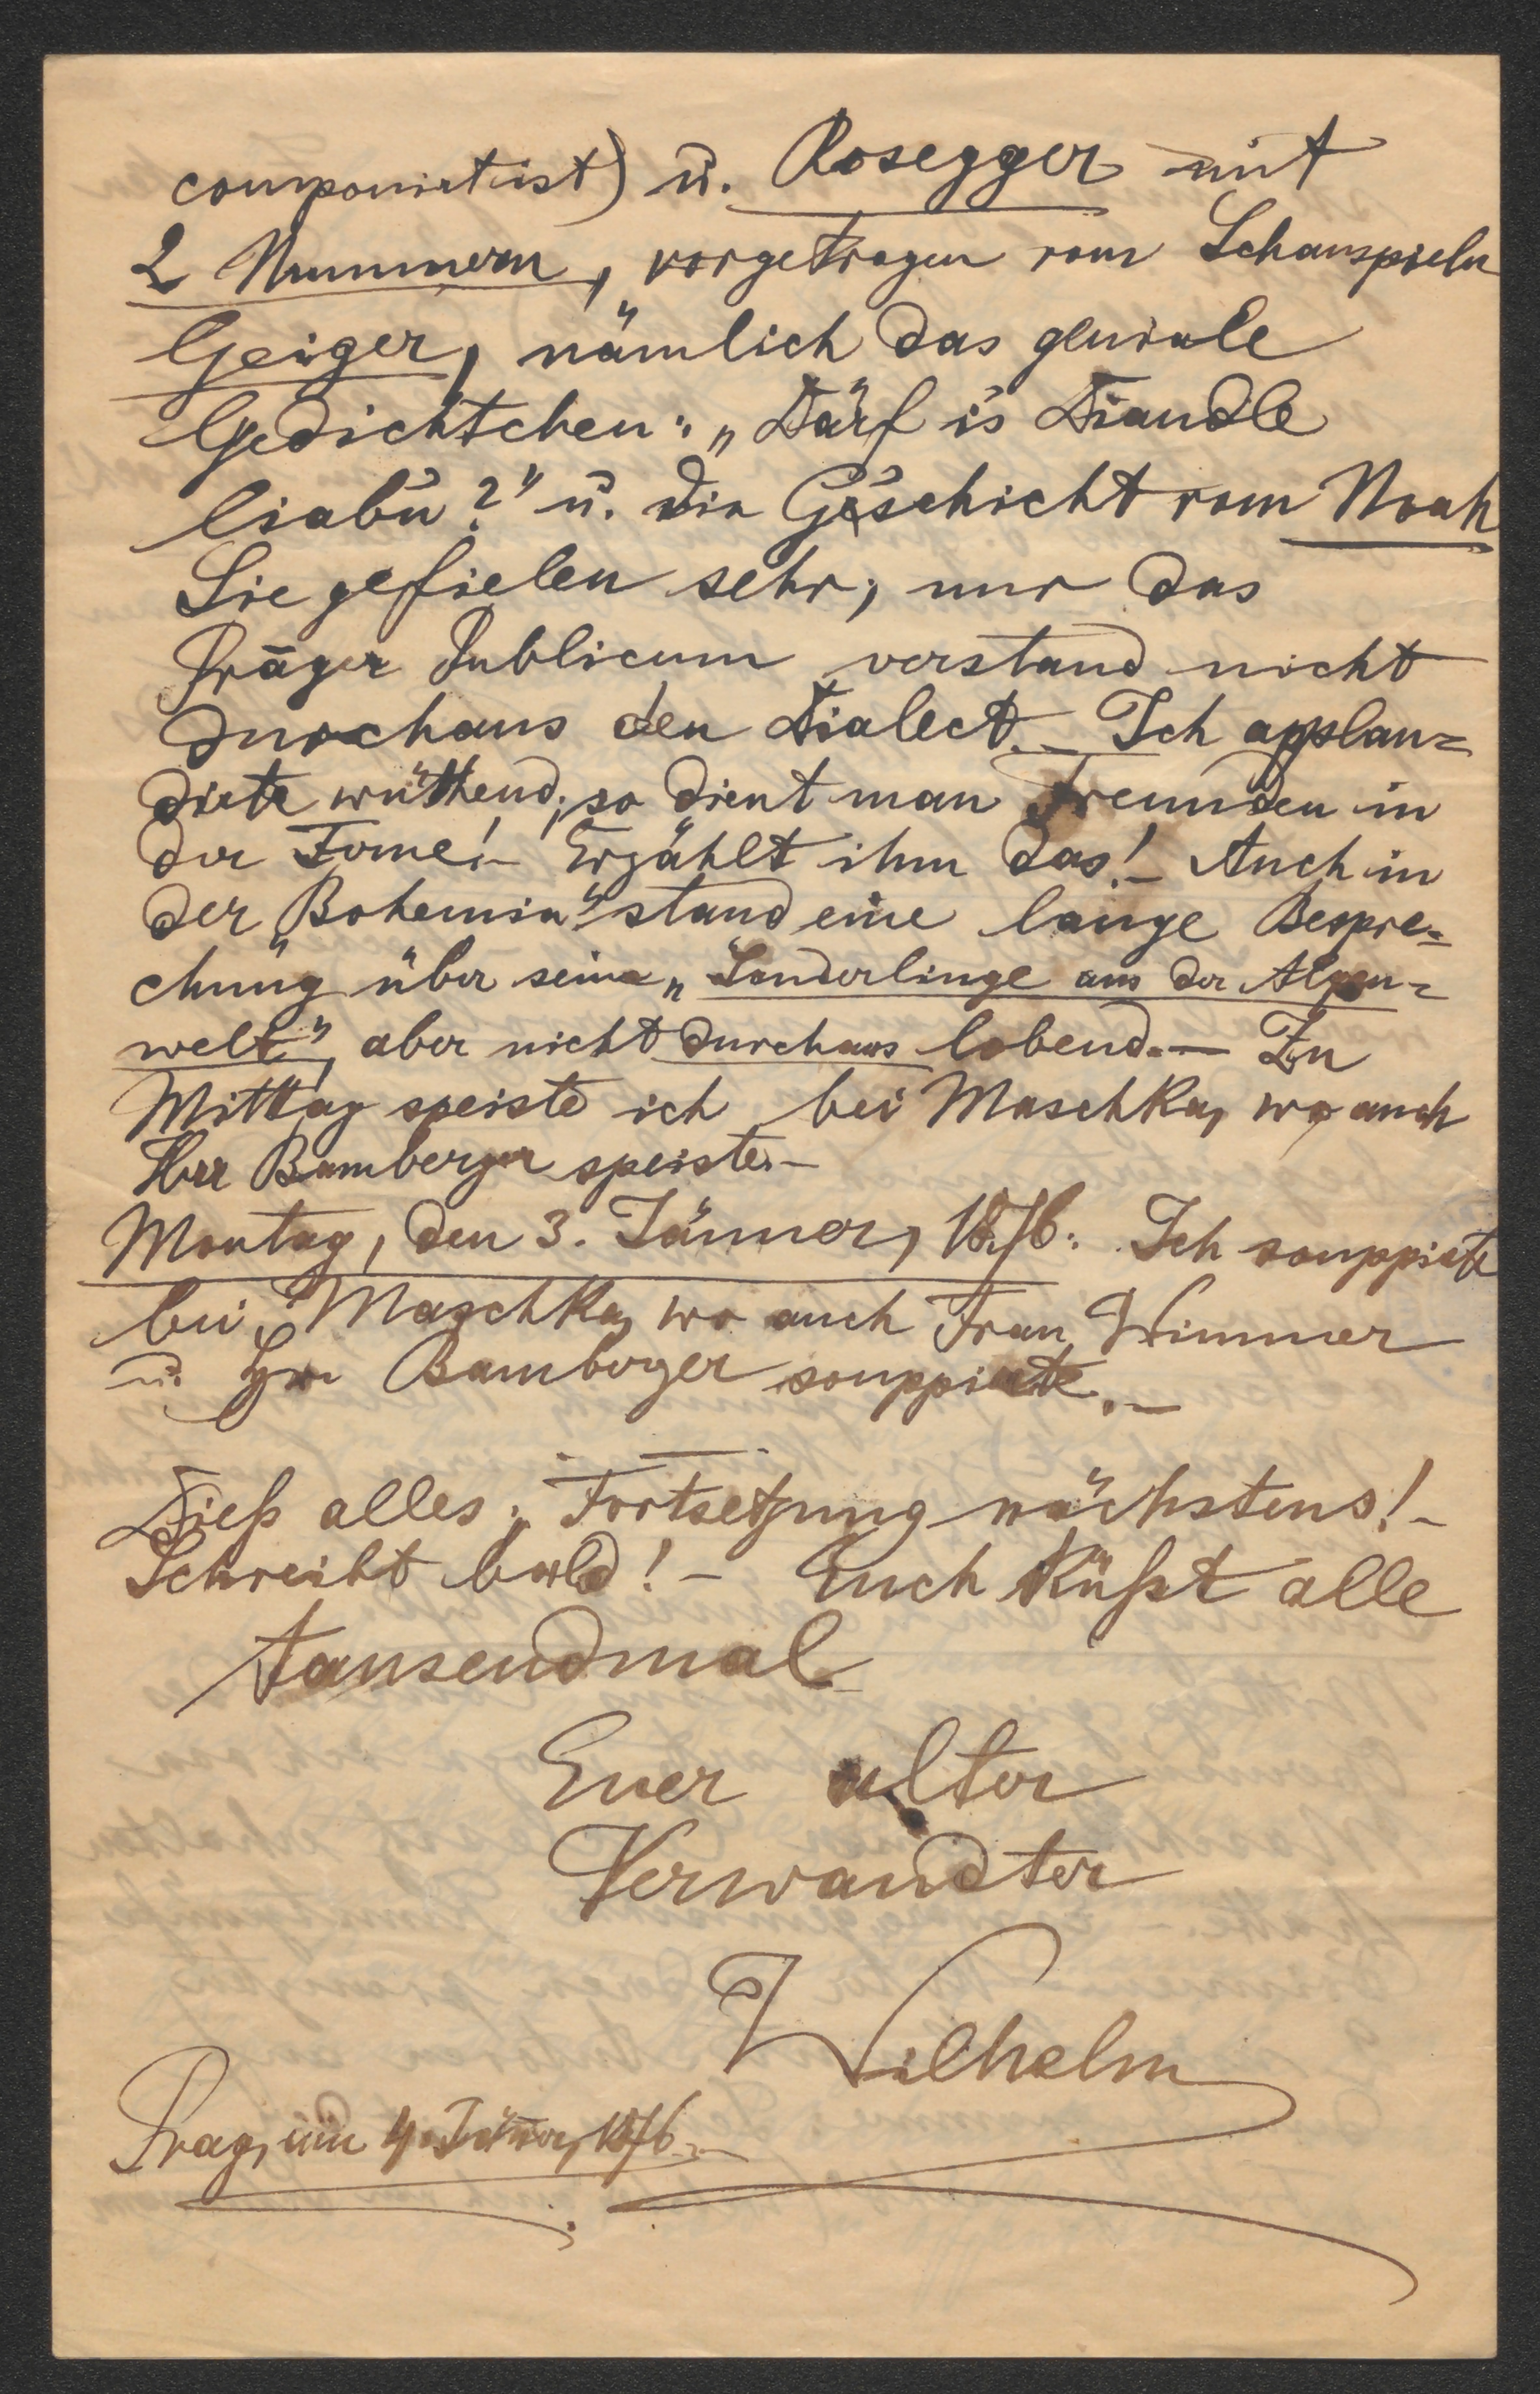 componirt ist) u. Rosegger mit
2 Nummern, vorgetragen vom Schauspieler
Geiger, nämlich das geniale
Gedichtchen: „Därf i's Diandle
liab'n?" u. die G'schicht vom Noah
Sie gefielen sehr, nur das
Prager Publicum verstand nicht
durchaus den Dialect. – Ich applau=
dirte wüthend; so dient man Freunden in
der Ferne! – Erzählt ihm das! – Auch in
der „Bohemia" stand eine lange Bespre=
chung über seine „Sonderlinge aus der Alpen=
welt", aber nicht durchaus lobend. — Zu
Mittag speiste ich bei Maschka, wo auch
Herr Bamberger speiste. –
Montag, den 3. Jänner, 1876. Ich souppirte
bei Maschka, wo auch Frau Wimmer
u. Hr. Bamberger souppirte. –
Dieß alles; Fortsetzung nächstens! –
Schreibt bald! – Euch küßt alle
tausendmal
Euer alter
Verwandter
Wilhelm
Prag, am 4. Jänner, 1876. –